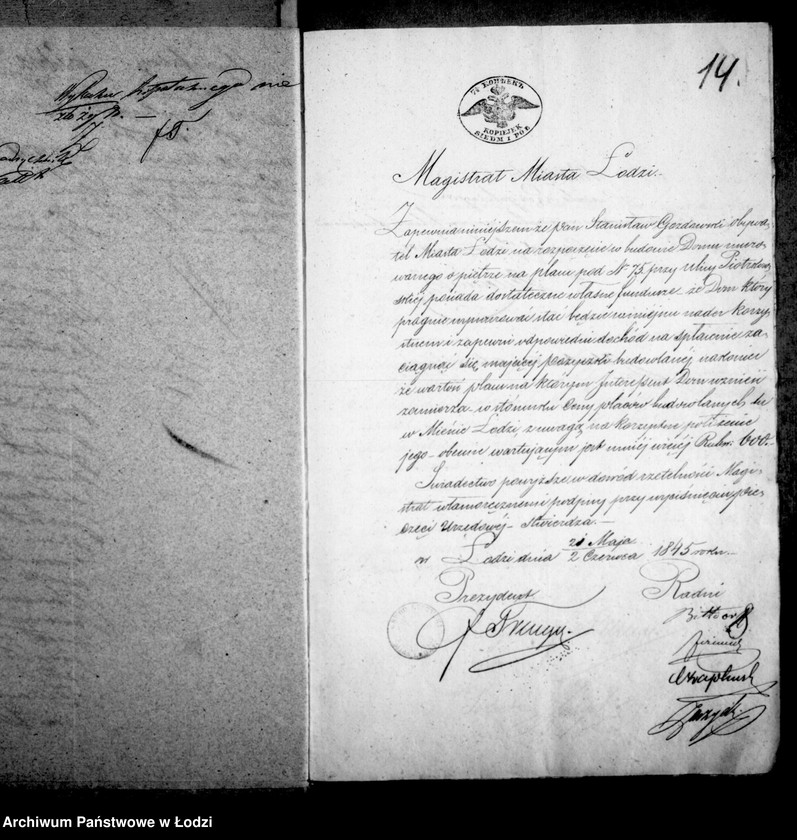 nie
złoży
14.
7½ КОПѢЕКЪ
KOPIEJEK
SIEDM I PÓŁ
Magistrat Miasta Łodzi.
Zapewnia niniejszem że pan Stanisław Gozdowski obywa-
tel Miasta Łodzi na rozpoczęcie w budowie Domu muro-
wanego o piętrze na placu pod Nr 75 przy ulicy Piotrkow-
skiéj posiada dostateczne własne fundusze – że Dom który
pragnie wymurować stać będzie w miejscu nader korzy-
stnem i zapewni odpowiedni dochód na spłacenie za-
ciągnąć się mającéj pożyczki budowlanéj nakoniec
że wartość placu na którym Interessent Dom wznieść
zamierza w stósunku Ceny placów budowlanych tu
w Mieście Łodzi z uwagą na korzystne położenie
jego – obecnie wartującym jest mniéj więcéj Rubsr. 600.–
Świadectwo powyższe w dowód rzetelności Magi-
strat własnoręcznemi podpisy przy wyciśnięciu pie-
częci Urzędowéj – stwierdza. –
w Łodzi dnia 21 Maja / 2 Czerwca 1845 roku. –
Prezydent Radni
Traeger.